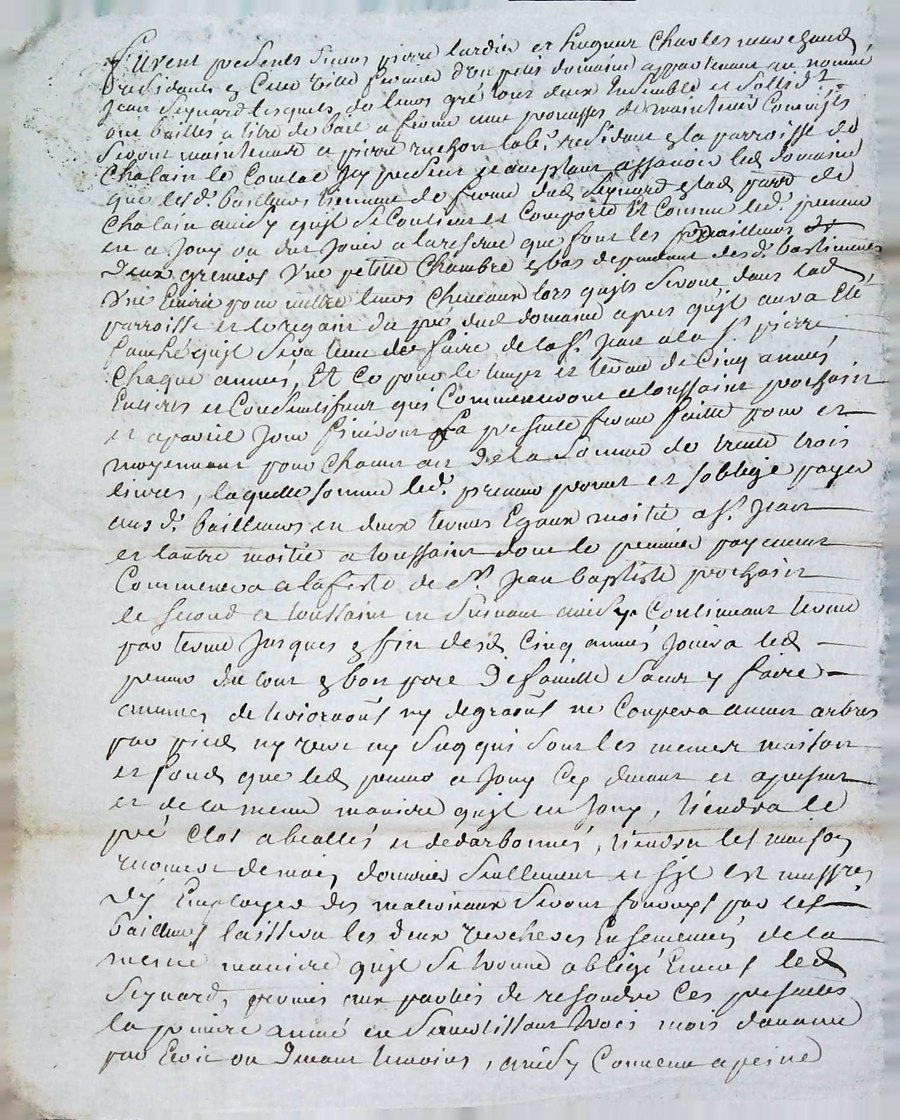 Furent présents Sieurs pierre tardier et hugueur Charles marchands
residants en Cette ville fermier d'un petit domaine appartenant au nommé
Jean Seynard lesquels de leurs gré tous deux Ensemble et sollidt
ont baillés a titre de bail a ferme avec promesse de maintenir Comme ils
seront maintenus a pierre ruchon labr residant en la parroisse de
Chalain le Comtal icy present et acceptant assavoir led domaine
que lesd. bailleurs tiennent de ferme dud Seynard en lad parre de
Chalain ainsy qu'il se Contient et Comporte Et Comme led. preneur
en a Jouy ou du Jouir a la reserve que font les bailleurs
deux greniers Une petitte Chambre en bas dependant desd. bastiments
Une Ecurie pour mettre leurs chevaux lors quils seront dans lad
parroisse et le regain du pré dud domaine apres qu'il aura Eté
fauché qu'il sera tenu de faire de la St. Jean a la St. pierre
Chaque année, Et Ce pour le temps et terme de Cinq années
Entieres et Consecutifves qui Commenceront a toussaint prochain
et a pareil Jour finiront La presente ferme faitte pour et
moyennant pour Chacun an De la Somme de trente trois
livres, laquelle somme led. preneur promet et soblige payer
ausd. bailleurs en deux termes Egaux moitié a St. Jean
et lautre moitié a toussaint dont le premier payement
Commencera a la feste de St Jean baptiste prochain
le second a toussaint en suivant ainsy Continuant terme
par terme Jusques en fin desd Cinq années Jouira led
preneur du tout en bon pere De famille sans y faire
aucunes deterioraons ny degraons ne Coupera aucun arbres
par pied ny ny seq qui sont les memes maison
et fonds que led preneur a Jouy Cy devant et a present
et de la meme maniere qu'il en Jouy, tiendra le
pré Clos abeallés et dedarbonnés, tiendra les maison
de main seullement et s'il est
d'y Employer des materiaux seront fournys par les
bailleurs laissera les deux vercheres Ensemencées de la
meme maniere qu'il se trouve obligé Envers led
Seynard, permis aux parties de resoudre Ces presentes
la premiere année en s'avertissant trois mois d'avance
par Ecrit ou devant temoins, ainsy Convenu a peine